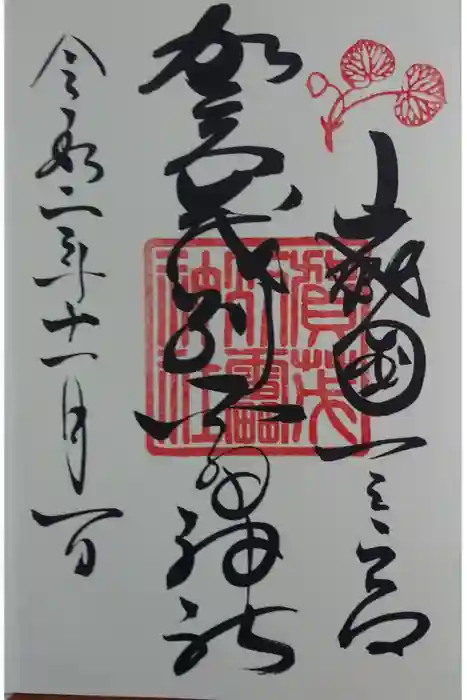 山城国一之宮
賀茂別雷神社
令和二年十一月一日
賀茂
別雷
神社